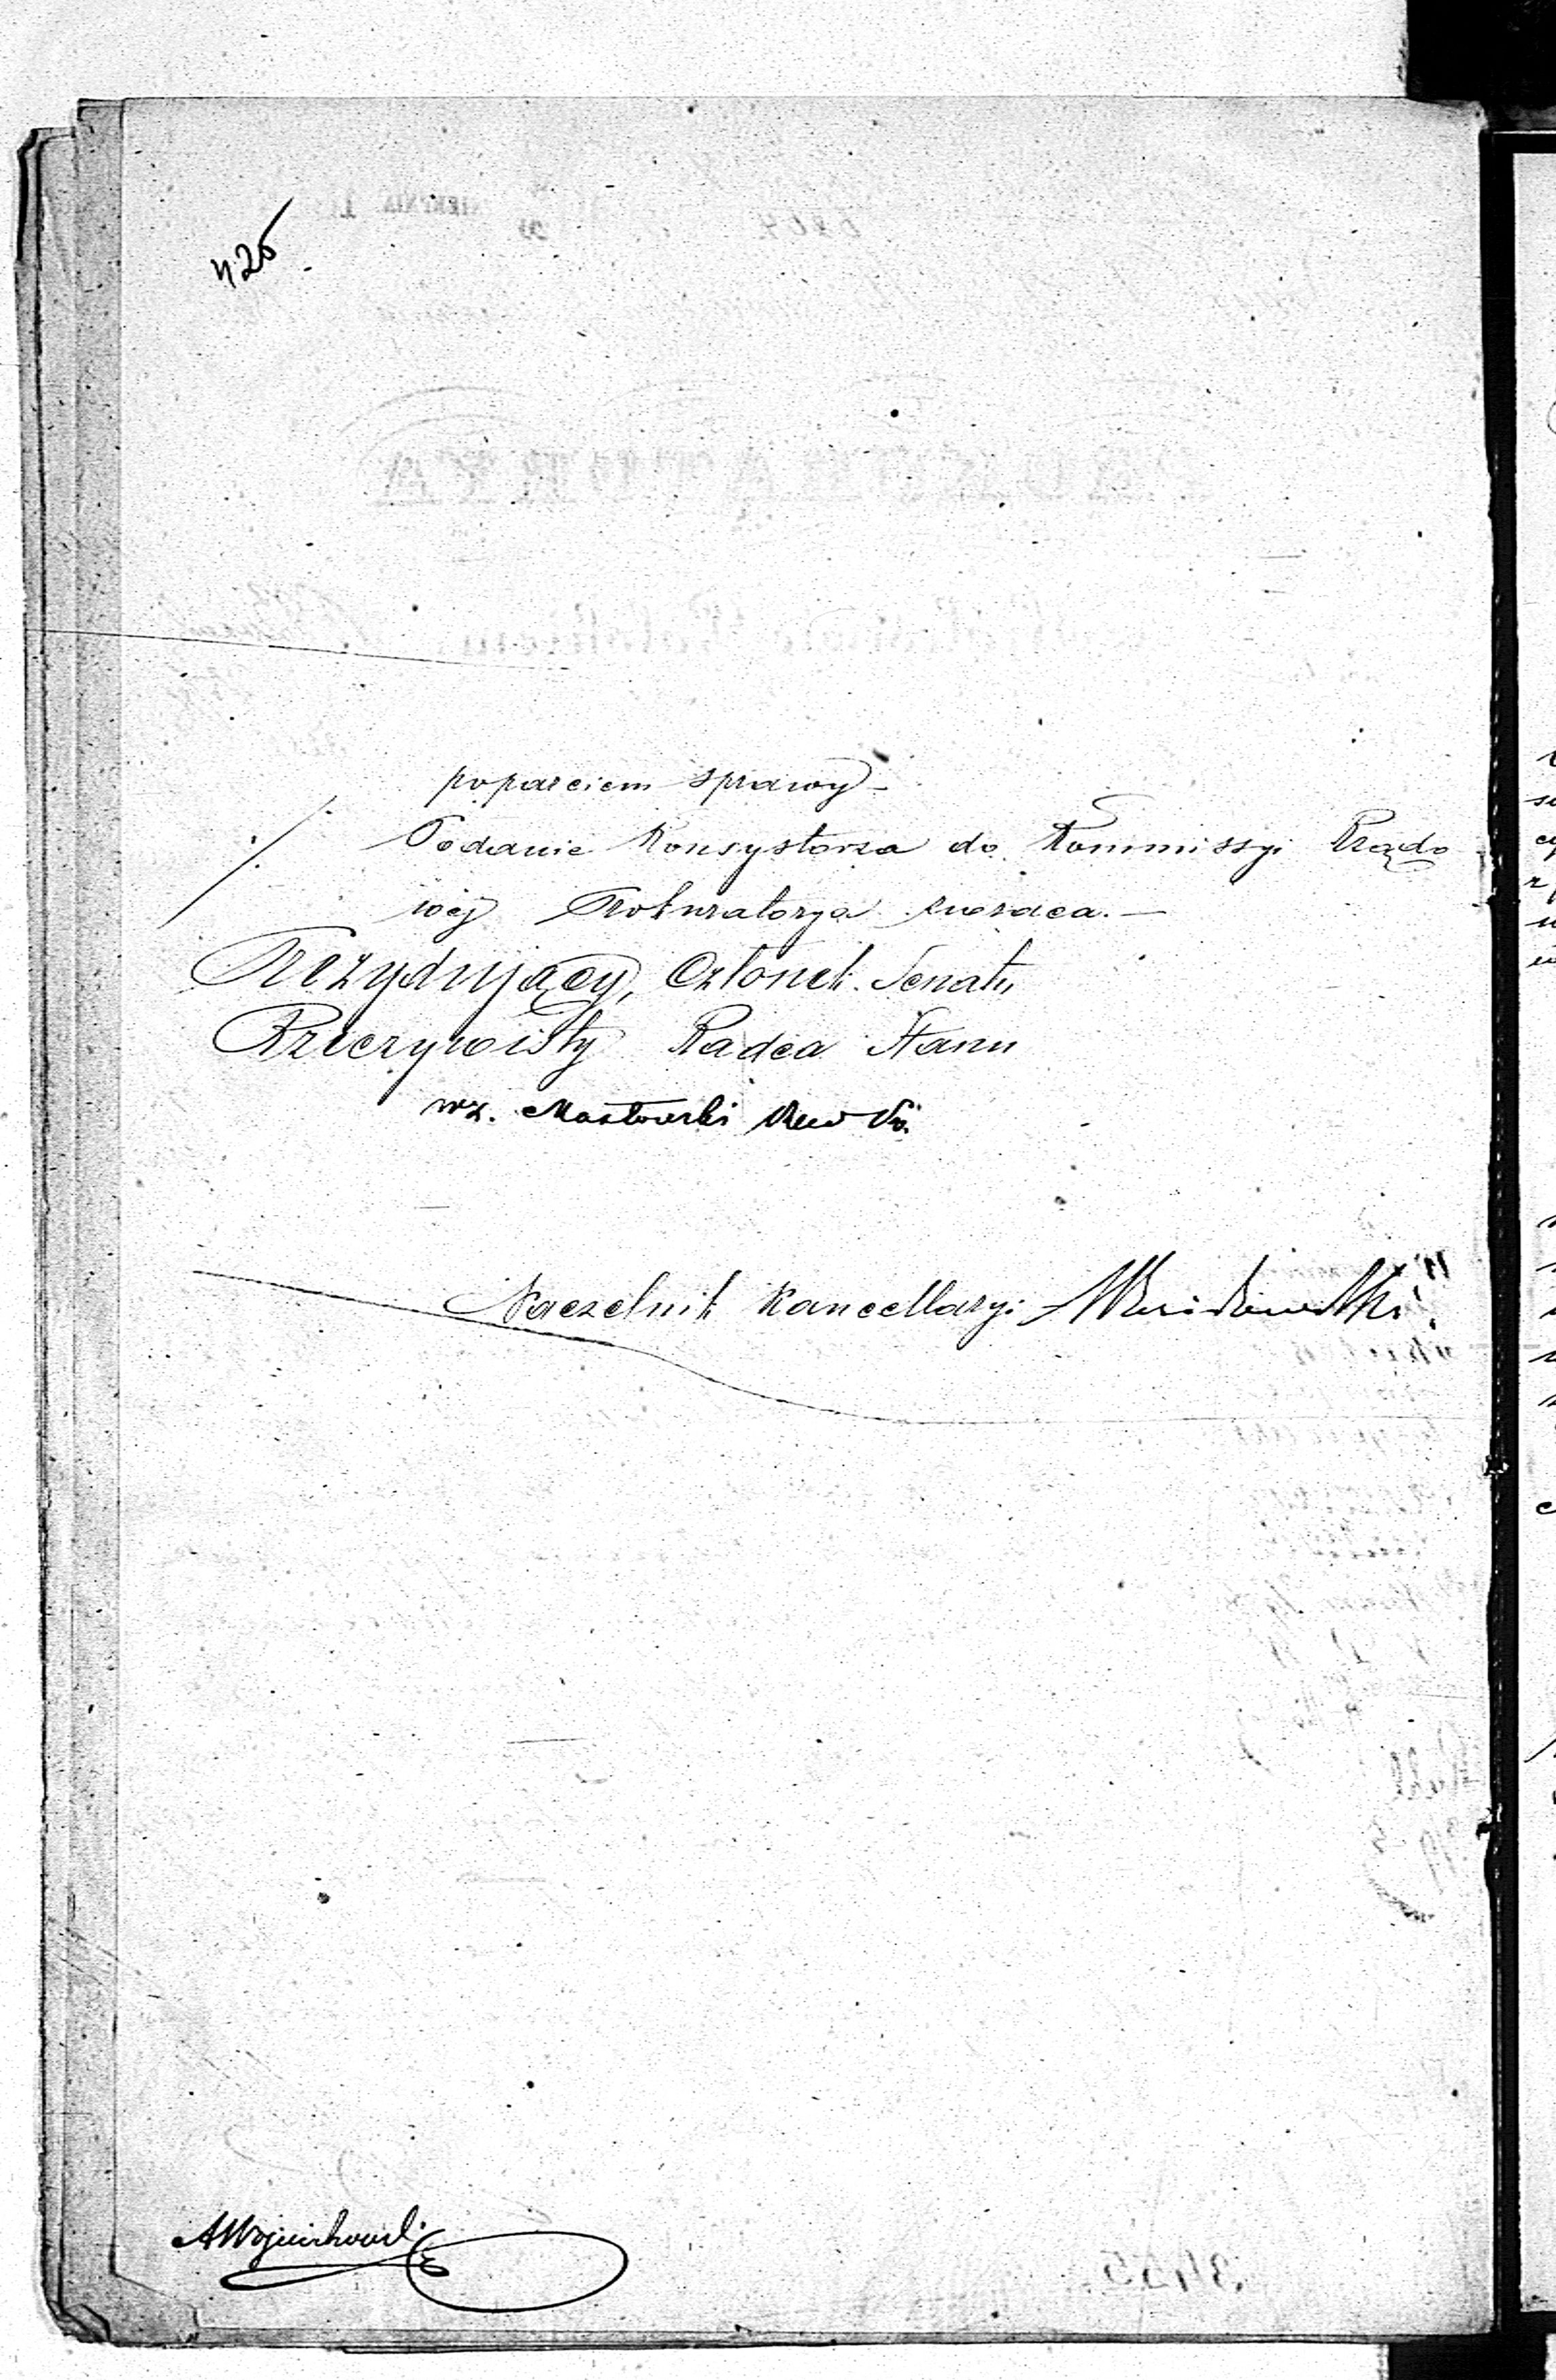 426
poparciem sprawy –
Podanie Konsystorza do Kommissyi Rządo
wej Prokuratorya zwraca. –
Prezydujący, Członek Senatu
Rzeczywisty Radca Stanu
wz. Masłowski
Naczelnik Kancellaryi
AWojciechowski